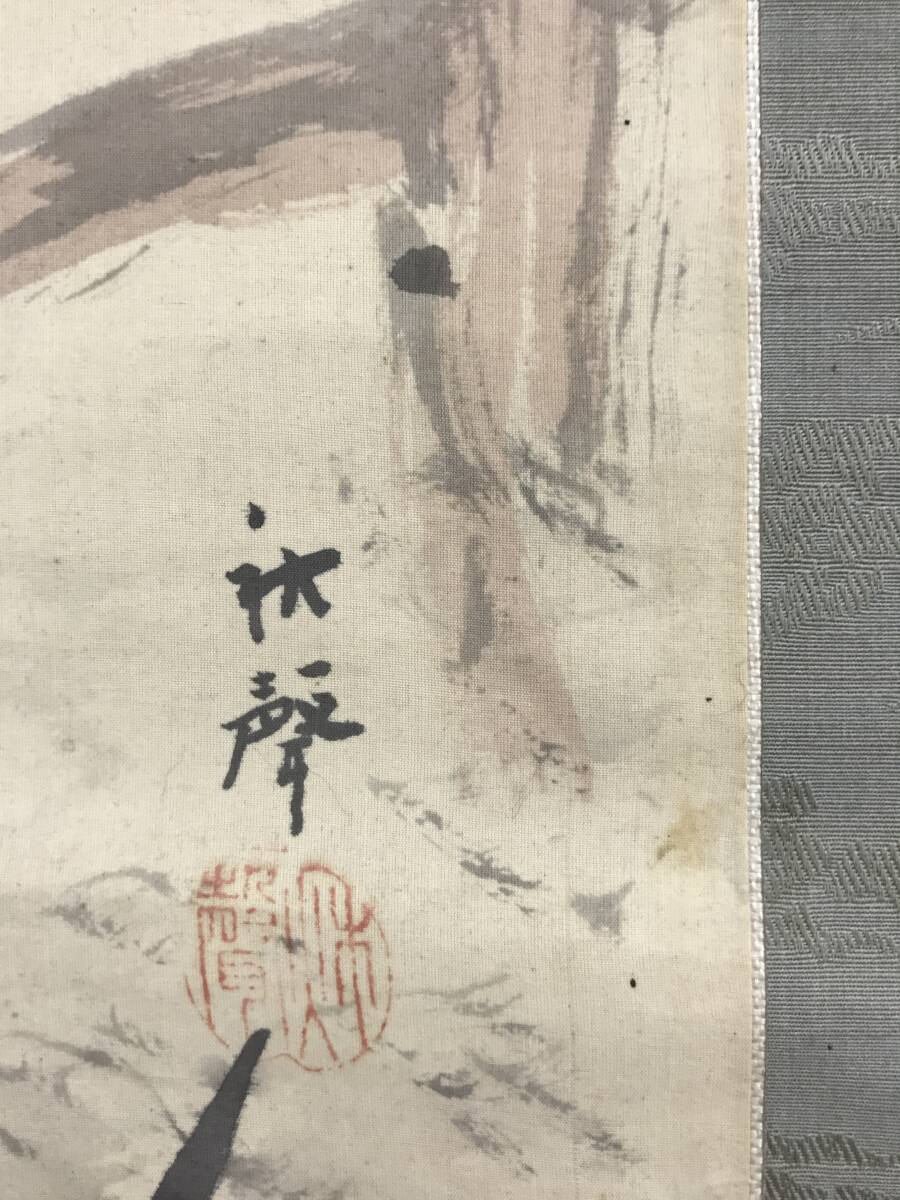 秋聲
秋聲